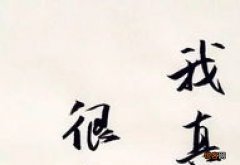 我真
很